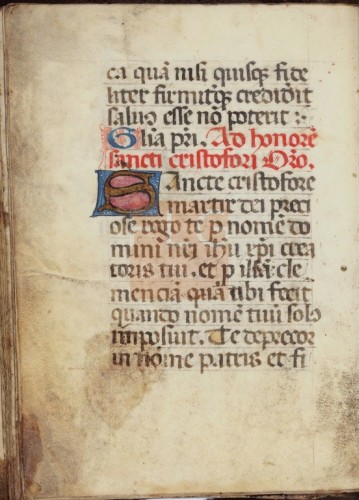 ca quā nisi quisq; fide
liter firmitq; crediderit
saluus esse nō poterit :
Glia pri. Ad honorē
sancti cristofori Oro.
Sancte cristofore
martir dei preci
ose rogo te p nomē do
mini nri ihu xpi crea
toris tui. et p illā cle
menciā quā tibi fecit
quando nomē tuū solo
imposuit. Te deprecor
in nomē patris et fi